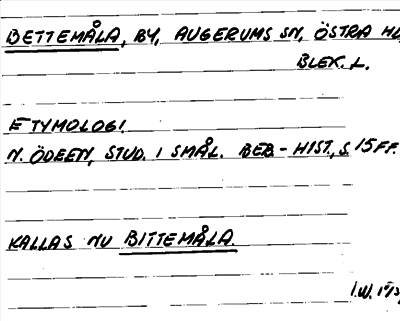 BETTEMÅLA, BY, AUGERUMS SN, ÖSTRA HD,
BLEK. L.
ETYMOLOGI
N. ÖDEEN, STUD. I SMÅL. BEB.-HIST., S. 15 FF.
KALLAS NU BITTEMÅLA.
I.W.